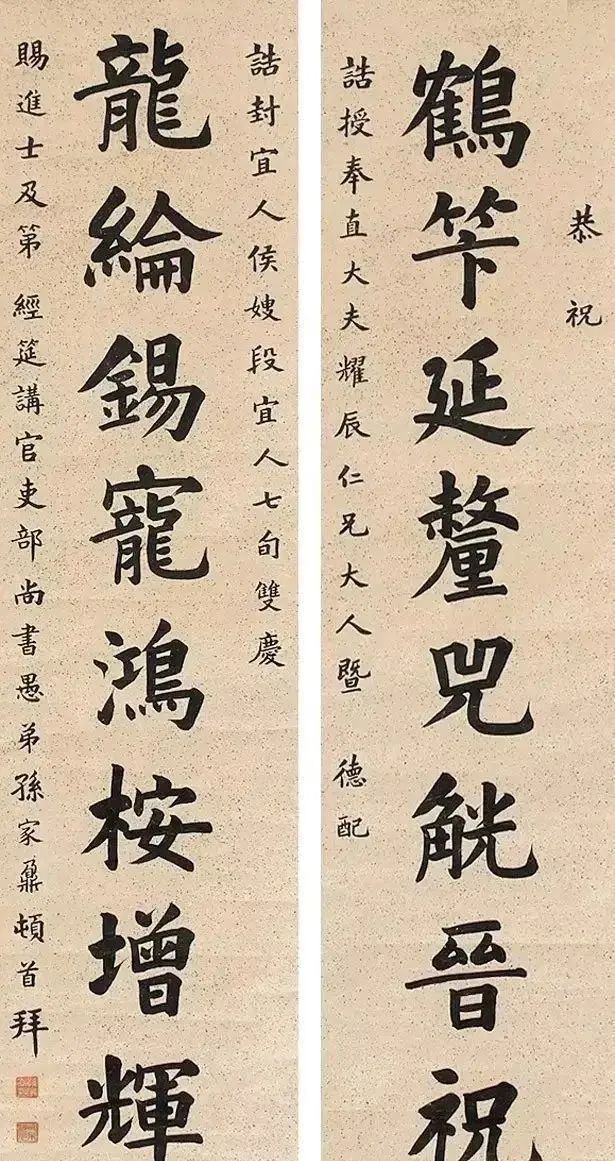 恭祝
鶴笇延釐兕觥晉祝
誥授奉直大夫耀辰仁兄大人暨 德配
誥封宜人侯嫂段宜人七旬雙慶
龍綸錫寵鴻桉增輝
賜進士及第 經筵講官吏部尚書愚弟孫家鼐頓首拜